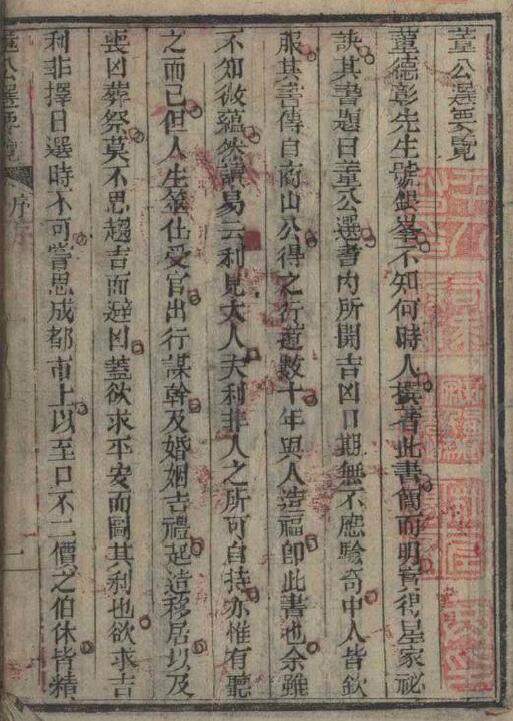 董公選要覽
董德彰先生號銀峯不知何時人撰著此書簡而明真得星家祕
訣其書題曰董公選書內所開吉凶日期無不應驗奇中人皆欽
服其書傳自商山公得之行道數十年與人造福卽此書也余雖
不知微蘊然讀易云利見大人夫利非人之所可自持亦惟有聽
之而已但人生筮仕受官出行謀幹及婚姻吉禮起造移居以及
喪凶葬祭莫不思趨吉而避凶蓋欲求平安而圖其利也欲求吉
利非擇日選時不可嘗思成都市上以至口不二價之伯休皆精
董公選要覽
序
一